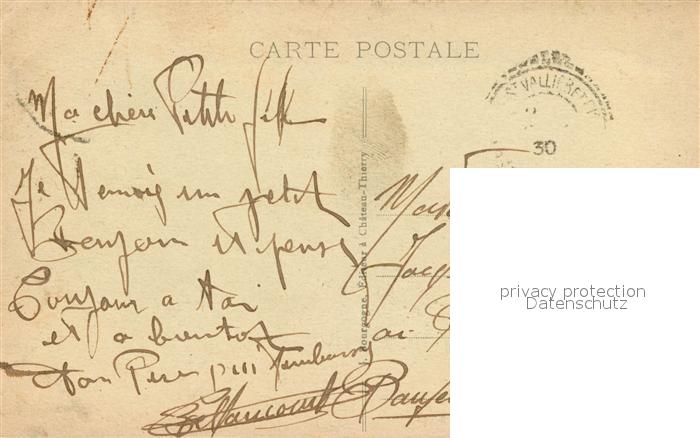 CARTE POSTALE
Ma chère Petite fille
Je t'envoie un petit
Bonjour et pense
Toujours a toi
et a bientot
Ton Père qui t'embrasse
Bettancourt
J. Bourgogne, Éditeur à Château-Thierry
VALLIER
30
privacy protection
Datenschutz